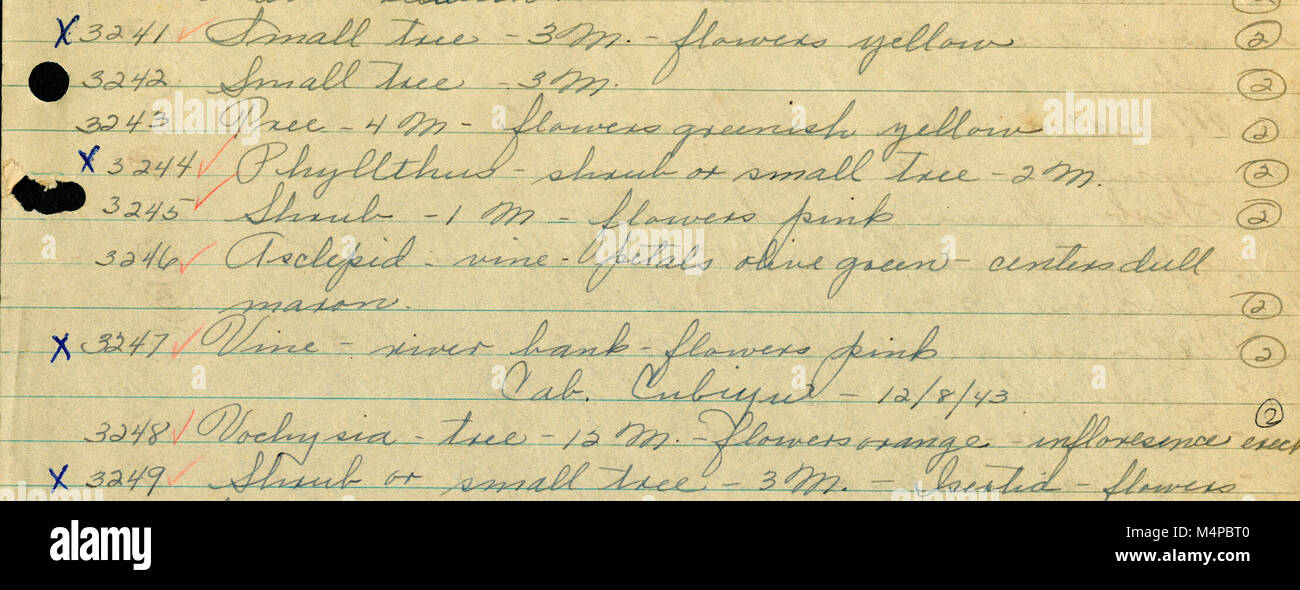 X 3241 ✓ Small tree - 3 M. - flowers yellow ②
3242 Small tree - 3 M. ②
3243 Tree - 4 M - flowers greenish yellow ②
X 3244 ✓ Phyllthus - shrub or small tree - 2 M. ②
3245 ✓ Shrub - 1 M - flowers pink ②
3246 ✓ Asclepid - vine - petals olive green - centers dull
maron. ②
X 3247 ✓ Vine - river bank - flowers pink ②
Cab. Cubiyu - 12/8/43
②
3248 ✓ Vochysia - tree - 12 M. - flowers orange - infloresence erect
X 3249 ✓ Shrub or small tree - 3 M. - Isertia - flowers
alamy
Image ID: M4PBT0
www.alamy.com